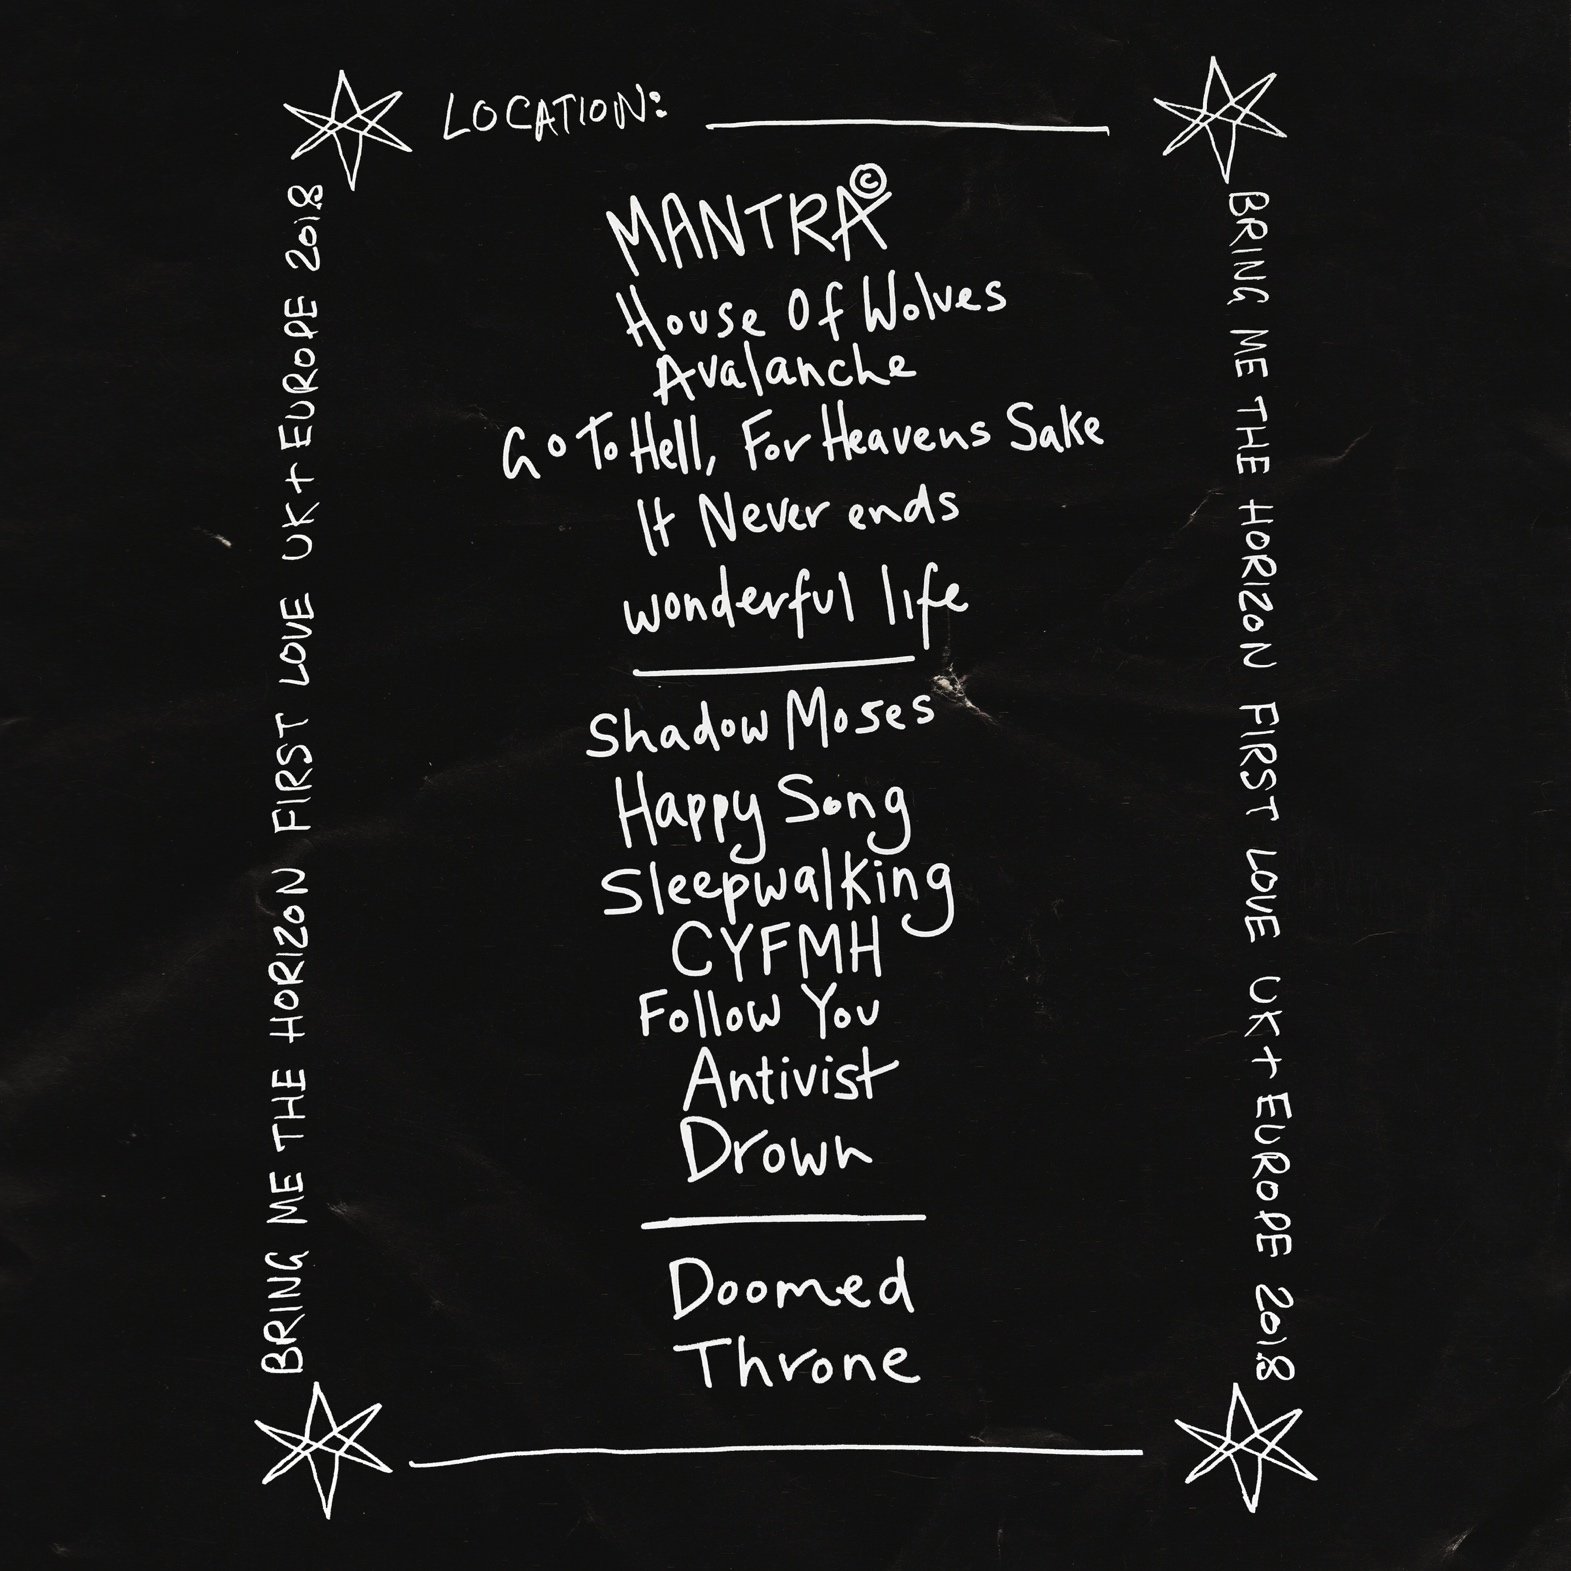 LOCATION:
MANTRA©
House Of Wolves
Avalanche
Go To Hell, For Heavens Sake
It Never ends
wonderful life
Shadow Moses
Happy Song
Sleepwalking
CYFMH
Follow You
Antivist
Drown
Doomed
Throne
BRING ME THE HORIZON FIRST LOVE UK+EUROPE 2018
BRING ME THE HORIZON FIRST LOVE UK+EUROPE 2018